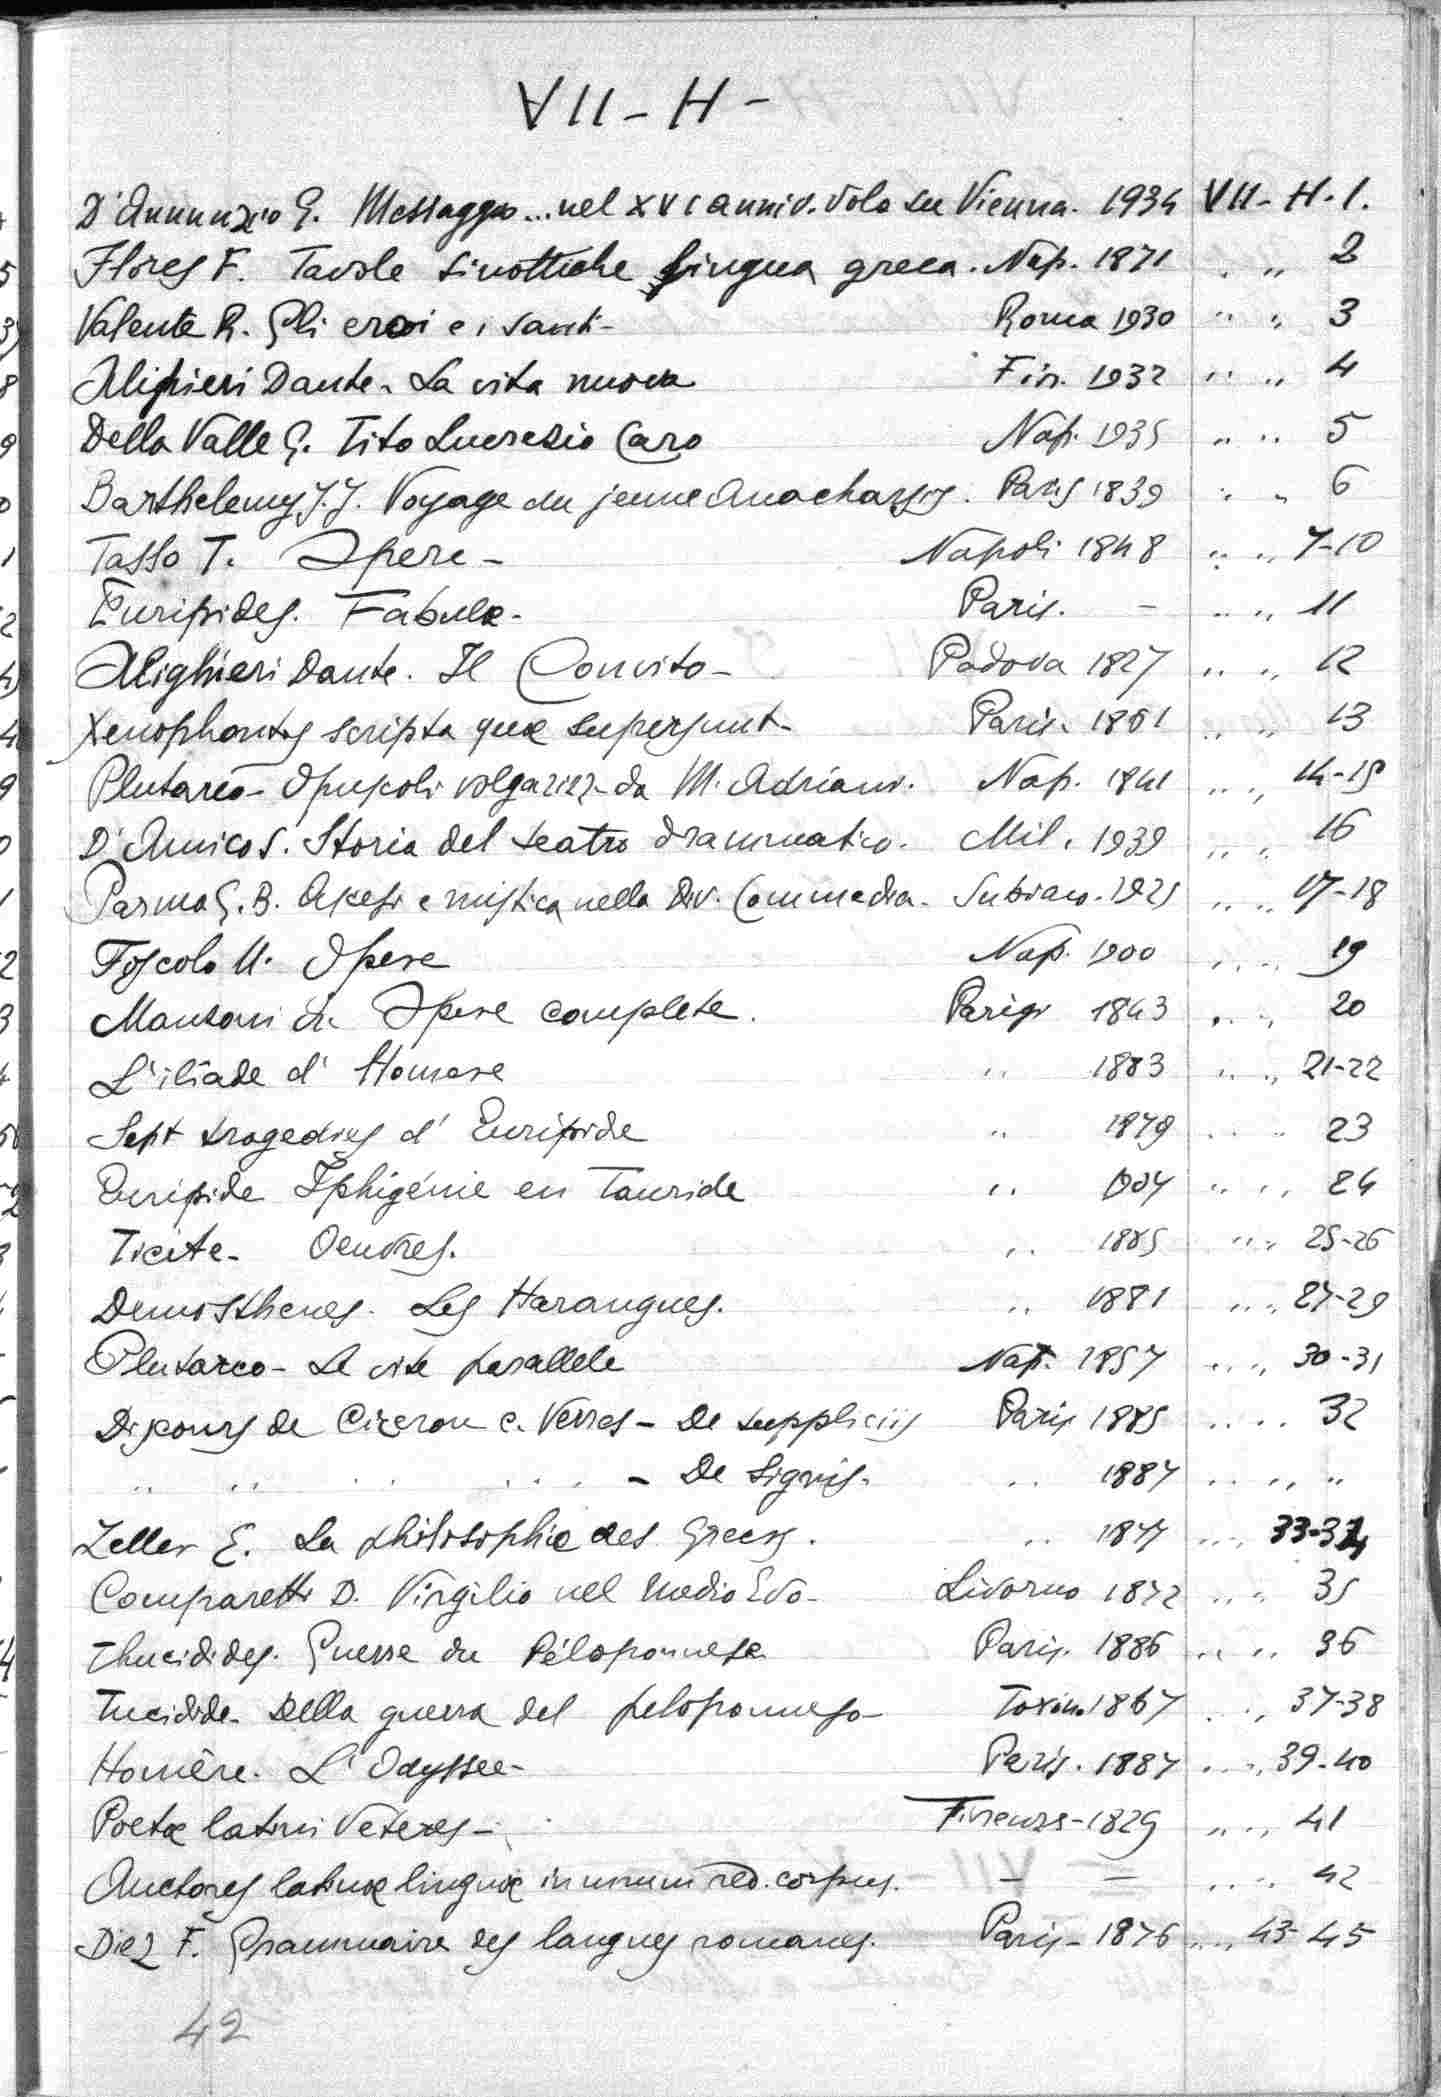 VII - H -
D'Annunzio G. Messaggio... nel XVI anniv. volo su Vienna. 1934 VII - H - 1.
Flores F. Tavole sinottiche lingua greca. Nap. 1871 " " 2
Valente R. Gli eroi e i santi - Roma 1930 " " 3
Alighieri Dante - La vita nuova Fir. 1932 " " 4
Della Valle G. Tito Lucrezio Caro Nap. 1935 " " 5
Barthelemy J. J. Voyage du jeune Anacharsis. Paris 1839 " " 6
Tasso T. Opere - Napoli 1848 " " 7-10
Euripides. Fabulæ - Paris. - " " 11
Alighieri Dante. Il Convito - Padova 1827 " " 12
Xenophontis scripta quæ supersunt - Paris. 1861 " " 13
Plutarco - Opuscoli volgarizz. da M. Adriani. Nap. 1841 " " 14-15
D'Amico S. Storia del teatro drammatico. Mil. 1939 " " 16
Parma G. B. Ascesi e mistica nella Div. Commedia - Subiaco. 1925 " " 17-18
Foscolo U. Opere Nap. 1900 " " 19
Manzoni A. Opere complete. Parigi 1843 " " 20
L'iliade d'Homere " 1883 " " 21-22
Sept tragedies d'Euripide " 1879 " " 23
Euripide Iphigénie en Tauride " " " 24
Tacite - Oeuvres. " 1885 " " 25-26
Demosthenes. Les Harangues. " 1881 " " 27-29
Plutarco - Le vite parallele Nap. 1857 " " 30-31
Discours de Ciceron c. Verres - De suppliciis Paris 1885 " " 32
" " " " " - De Signis. " 1887 " " "
Zeller E. La philosophie des Grecs. " 1877 " " 33-34
Comparetti D. Virgilio nel medio Evo - Livorno 1872 " " 35
Thucidides. Guerre du Péloponnese Paris. 1886 " " 36
Tucidide - Della guerra del peloponneso - Torino 1867 " " 37-38
Homère. L'Odyssee - Paris. 1887 " " 39-40
Poetæ latini veteres - Firenze - 1829 " " 41
Auctores latinæ linguæ in unum red. corpus. - - " " 42
Diez F. Grammaire des langues romanes. Paris - 1876 " " 43-45
42